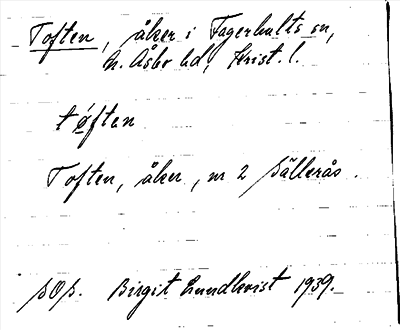 Toften, åker i Fagerhults sn,
N. Åsbo hd, Krist. l.
tøften
Toften, åker, nr 2 Sällerås.
SOS. Birgit Lundkvist 1939.